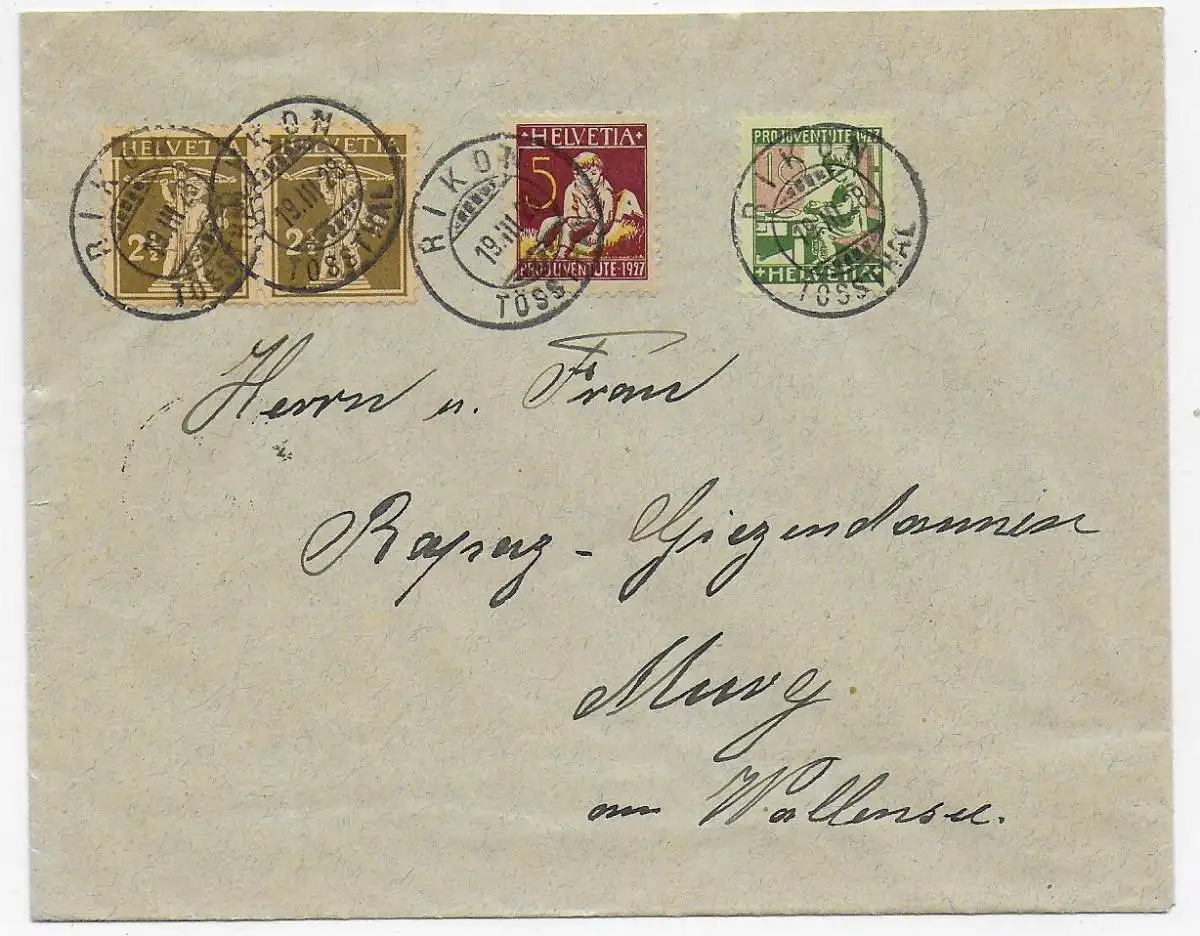 HELVETIA
2½
HELVETIA
2½
RIKON
19.III.28
TÖSSTHAL
RIKON
19.III.28
TÖSSTHAL
+HELVETIA+
5
PRO JUVENTUTE-1927
RIKON
19.III
TÖSS
PRO JUVENTUTE-1927
10
+HELVETIA+
RIKON
19.III.28
TÖSSTHAL
Herrn u. Frau
Giezendanner
Murg
am Wallensee.